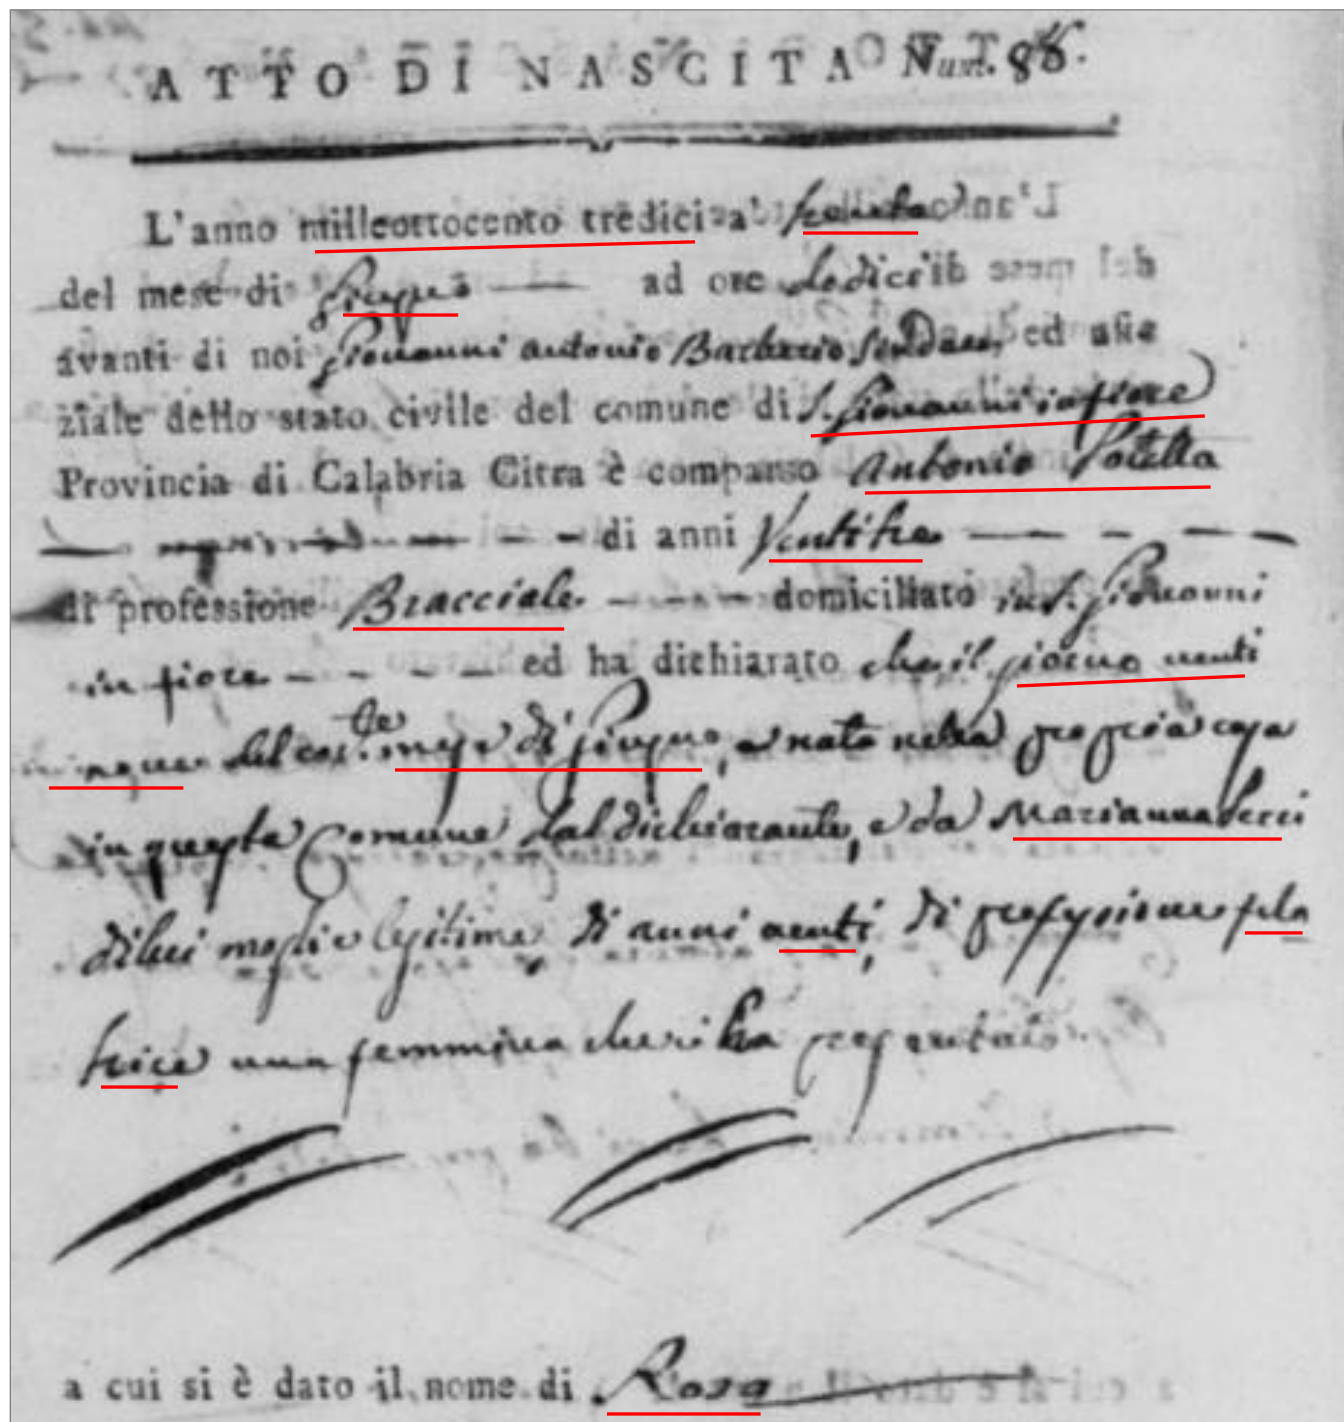 ATTO DI NASCITA Num. 86.
L'anno milleottocento tredici a' trenta
del mese di Giugno ad ore dodici
avanti di noi Giovanni Antonio Barberio Sindaco, ed uffi
ziale dello stato civile del comune di S. Giovanni in fiore
Provincia di Calabria Citra è comparso Antonio Potella
di anni Ventitre
di professione Bracciale domiciliato in S. Giovanni
in fiore ed ha dichiarato che il giorno venti
cinque del cor.te mese di Giugno, è nata nella propria casa
in questa Comune dal dichiarante, e da Marianna
di lui moglie legitima, di anni venti, di professione fila
trice una femmina che ci ha presentato
a cui si è dato il nome di Rosa